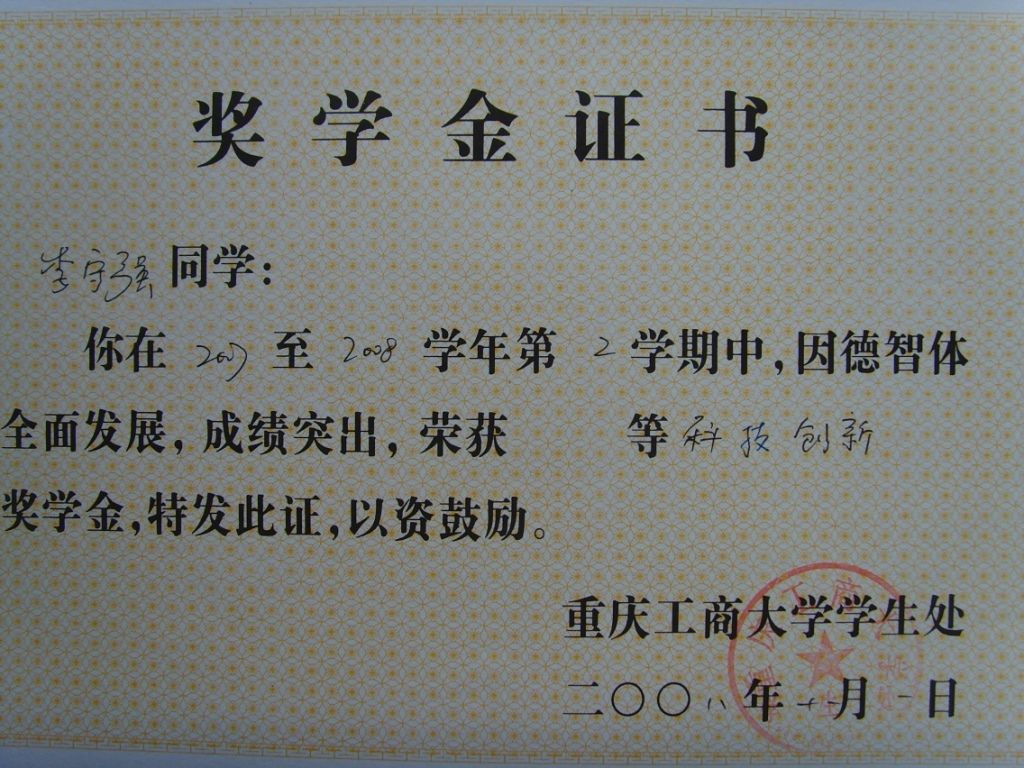 奖学金证书
李守强同学：
你在 2007 至 2008 学年第 2 学期中，因德智体
全面发展，成绩突出，荣获 等科技创新
奖学金，特发此证，以资鼓励。
重庆工商大学学生处
二〇〇八年十一月一日